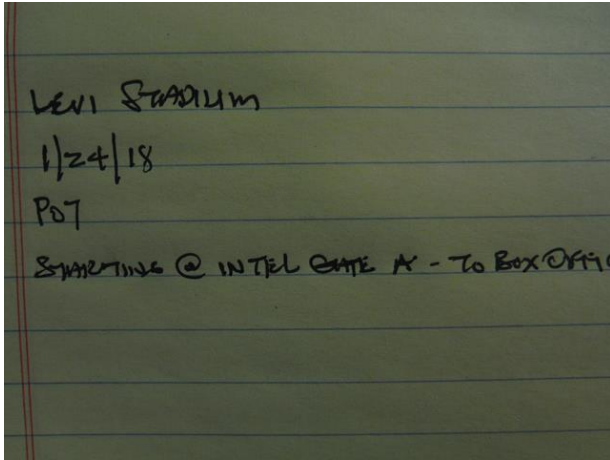 LEVI STADIUM
1/24/18
P07
STARTING @ INTEL GATE A - TO BOX OFFIC